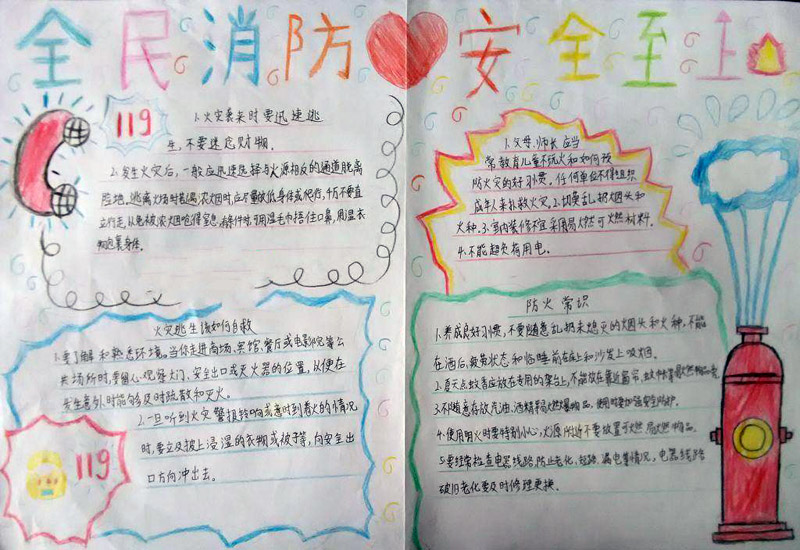 全民消防安全至上
119
1.火灾袭来时要迅速逃
生,不要迷恋财物。
2.发生火灾后,一般应迅速选择与火源相反的通道脱离
险地,逃离火场时若遇浓烟时,应尽量放低身体或爬行,千万不要直
立行走,以免被浓烟呛得窒息,有条件时,可用湿毛巾捂住口鼻,用湿衣
物包裹身体。
火灾逃生该如何自救
1.要了解和熟悉环境。当你走进商场、宾馆、餐厅或电影院等公
共场所时,要留心观察大门、安全出口或灭火器的位置,以便在
发生意外时能够及时疏散和灭火。
2.一旦听到火灾警报铃响或意时到着火的情况
时,要立及披上浸湿的衣物或被子等,向安全出
口方向冲出去。
119
1.父母、师长应当
常教育儿童不玩火和如何预
防火灾的好习惯。任何单位不得组织
成年人来扑救火灾。2.切莫乱扔烟头和
火种。3.室内装修不宜采用易燃可燃材料。
4.不能超负荷用电。
防火常识
1.养成良好习惯,不要随意乱扔未熄灭的烟头和火种,不能
在酒后、疲劳状态和临睡前在床上和沙发上吸烟。
2.夏天点蚊香应放在专用的架台上,不能放在靠近窗帘、蚊帐等易燃物品旁。
3.不随意存放汽油、酒精等易燃爆物品,使用时要加强安全防护。
4.使用明火时要特别小心,火源附近不要放置可燃易燃物品。
5.要经常检查电器线路,防止老化、短路、漏电等情况,电器线路
破旧老化要及时修理更换。